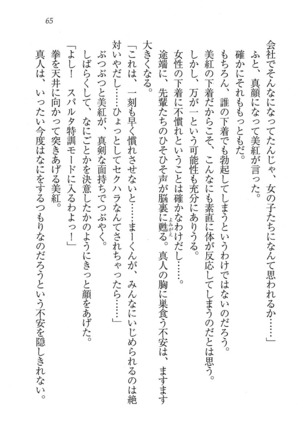 65
会社でそんなになってたんじゃ、女の子たちになんて思われるか……」
ふと、真顔になって美紅が言った。
確かにそれももっともだ。
もちろん、誰の下着でも勃起してしまうというわけではないのだろう。
美紅の下着だからこそ、こんなにも素直に体が反応してしまうのだとは思う。
しかし、万が一という可能性も充分にありうる。
女性の下着に不慣れということは確かなわけだし……。
途端に、先輩たちのひそひそ声が脳裏に甦る。真人の胸に巣食う不安は、ますます
よみがえ
大きくなる。
「これは、一刻も早く慣れさせないと……まーくんが、みんなにいじめられるのは絶
対いやだし……ひょっとしてセクハラなんてされちゃったら……」
ぶつぶつと美紅は、真剣な面持ちでつぶやく。
しばらくして、なにごとかを決意したかのようにきっと顔をあげた。
「よし！　スパルタ特訓モードに入るわよっ！」
拳を天井に向かって突きあげる美紅。
真人は、いったい今度はなにをするつもりなのだろうという不安を隠しきれない。